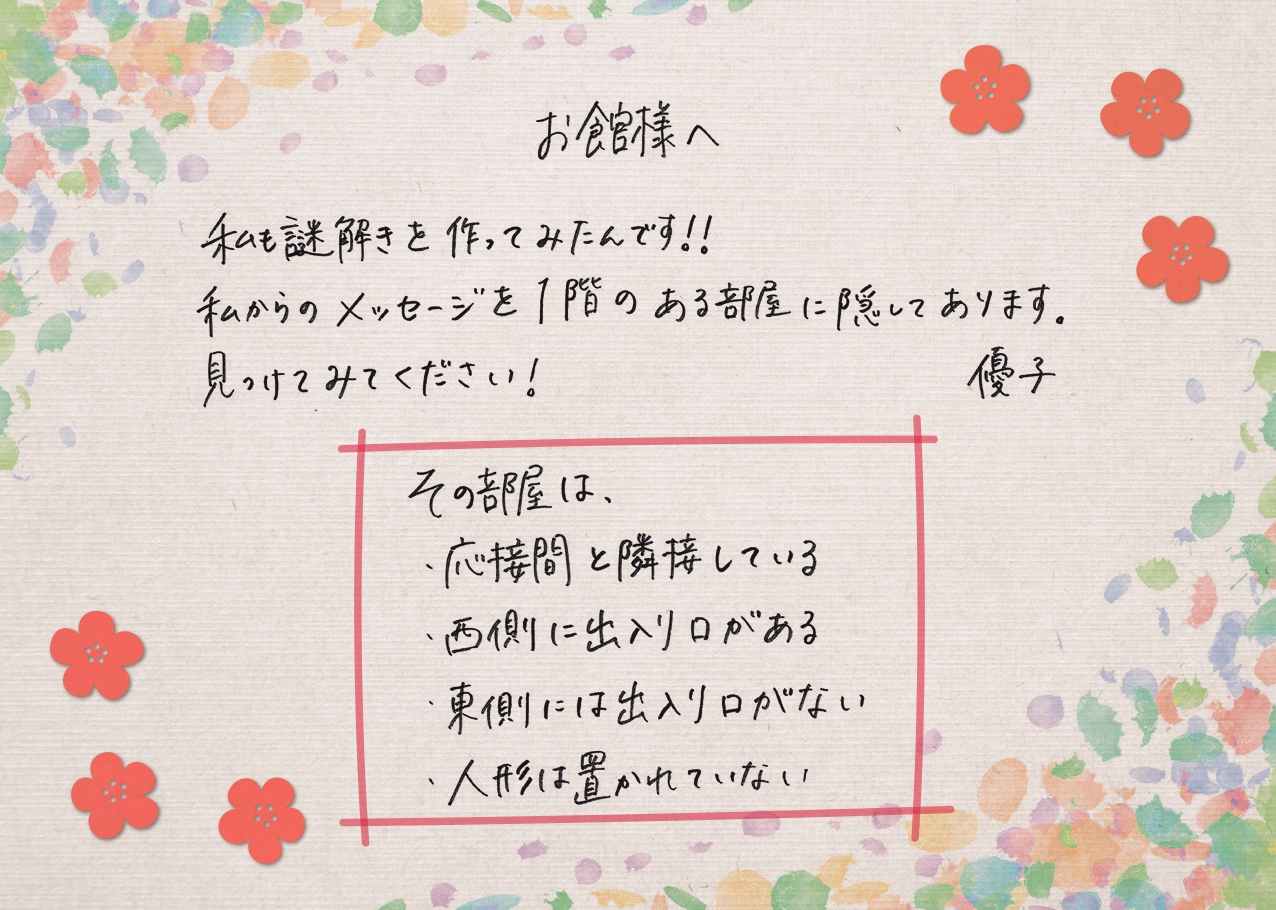 お館様へ
私も謎解きを作ってみたんです!!
私からのメッセージを1階のある部屋に隠してあります。
見つけてみてください!
優子
その部屋は、
・応接間と隣接している
・西側に出入り口がある
・東側には出入り口がない
・人形は置かれていない